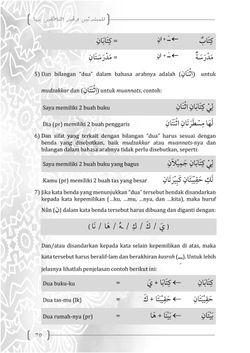 كِتَابٌ ← + انِ = كِتَابَانِ
مَدْرَسَةٌ ← + انِ = مَدْرَسَتَانِ
5) Dan bilangan "dua" dalam bahasa arabnya adalah (اثْنَانِ) untuk
mudzakkar dan (اثْنَتَانِ) untuk muannats, contoh:
لِيْ كِتَابَانِ اثْنَانِ
Saya memiliki 2 buah buku
لَهَا مِسْطَرَتَانِ اثْنَتَانِ
Dia (pr) memiliki 2 buah penggaris
6) Dan sifat yang terkait dengan bilangan "dua" harus sesuai dengan
benda yang disebutkan, baik mudzakkar atau muannats-nya dan
bilangan dalam bahasa arabnya tidak perlu disebutkan, seperti:
لِيْ كِتَابَانِ جَمِيْلَانِ
Saya memiliki 2 buah buku yang bagus
لَكِ حَقِيْبَتَانِ كَبِيْرَتَانِ
Kamu (pr) memiliki 2 buah tas yang besar
7) Jika kata benda yang menunjukkan "dua" tersebut hendak disandarkan
kepada kata kepemilikan (...ku, ...mu, ...nya, dan ...kita), maka huruf
Nûn (ن) dalam kata benda tersebut harus dibuang dan diganti dengan:
( يَ / كَ / كِ / هُ / هَا / نَا )
Dan/atau disandarkan kepada kata selain kepemilikan di atas, maka
kata tersebut harus beralif-lam dan berakhiran kasroh (ـِ). Untuk lebih
jelasnya lihatlah penjelasan contoh berikut ini:
Dua buku-ku = كِتَابَانِ ← كِتَابَا + يَ
Dua tas-mu (lk) = حَقِيْبَتَانِ ← حَقِيْبَتَا + كَ
Dua rumah-nya (pr) = بَيْتَانِ ← بَيْتَا + هَا